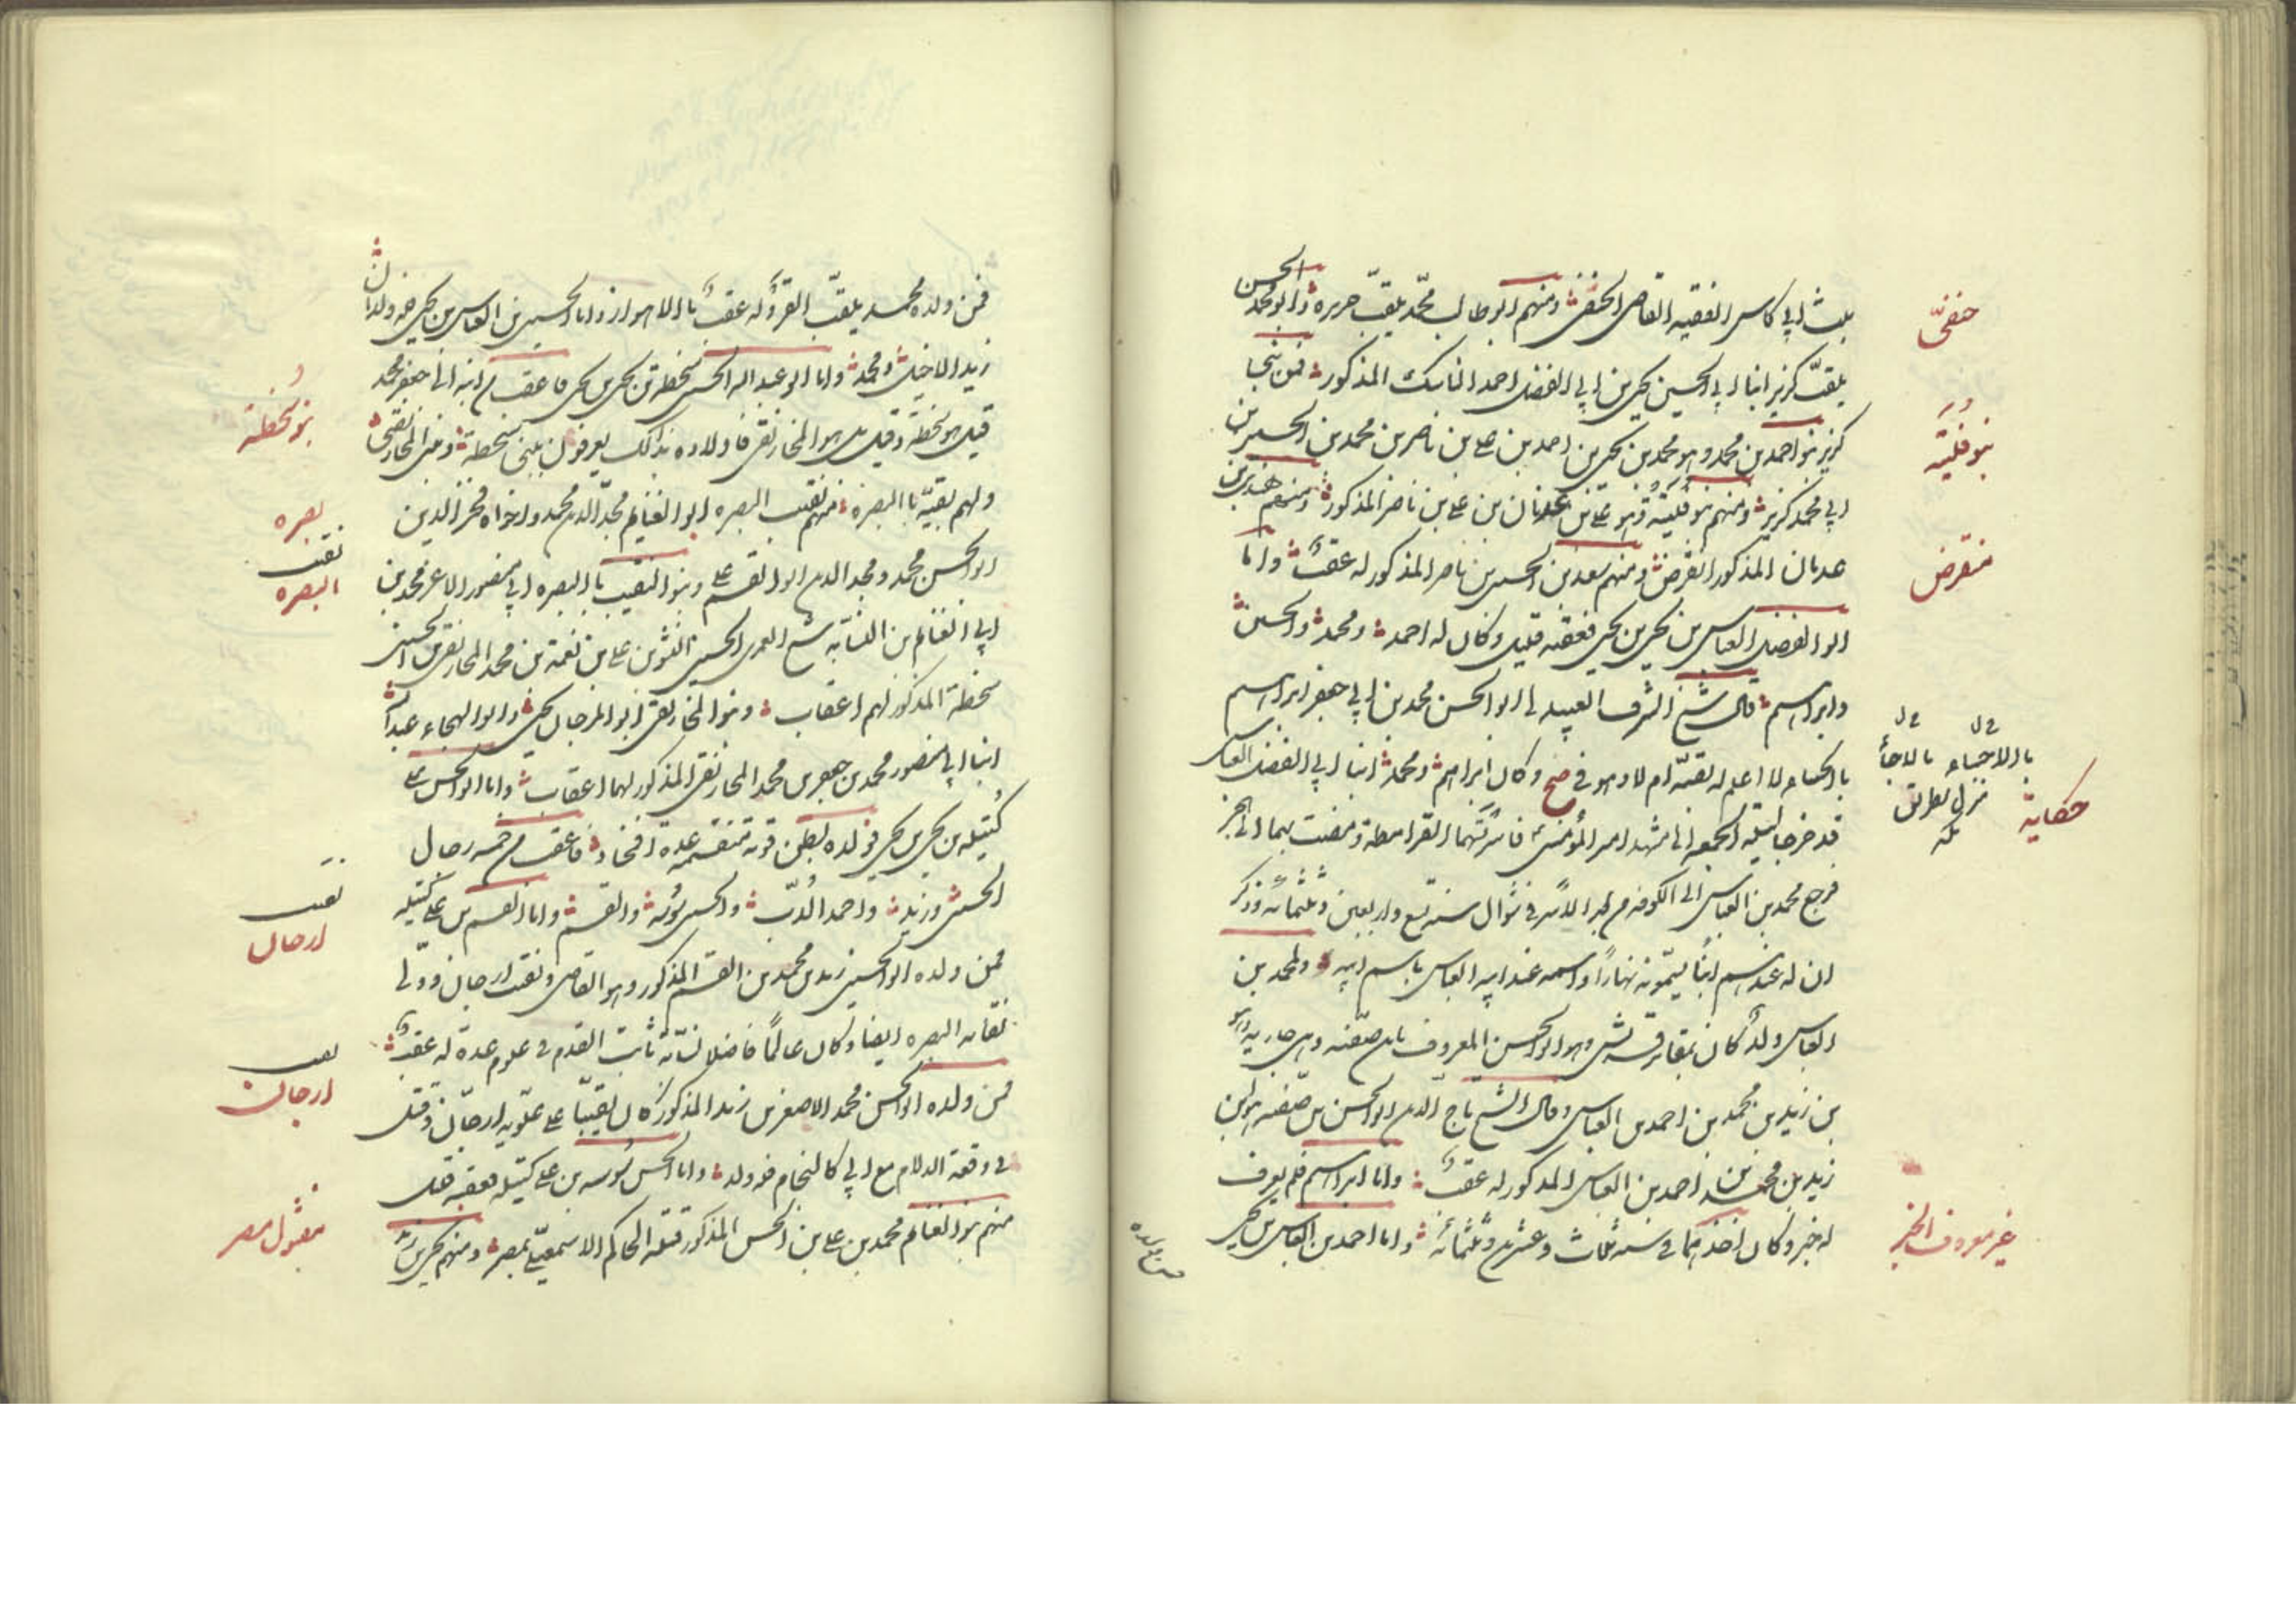 بنت ابي كاس الفقيه القاضي الحنفي ومنهم ابو طالب محمد يلقب حريره وابو محمد الحسن
يلقب كزبر ابنا ابي الحسين يحيى بن ابي الفضل احمد الناسك المذكور فمن
كزبر بنو احمد بن محمد وهو محمد بن يحيى بن احمد بن علي بن ناصر بن محمد بن الحسين بن
ابي محمد كزبر ومنهم بنو فليته وهو علي بن عدنان بن علي بن ناصر المذكور ومنهم
عدنان المذكور انقرض ومنهم سعد بن الحسين بن ناصر المذكور له عقب واما
ابو الفضل العباس بن يحيى بن يحيى فعقبه قليل وكان له احمد ومحمد والحسن
وابراهيم قال شيخ الشرف العبيدلي ابو الحسن محمد بن ابي جعفر ابراهيم
لا اعلم له بقية ام لا وهو في صح وكان ابراهيم ومحمد ابنا ابي الفضل العباس
قد خرجا ليلة الجمعه الى مشهد امير المؤمنين فاسرتهما القرامطة ومضت بهما الى
فرجع محمد بن العباس الى الكوفه من الاسر في شوال سنة تسع واربعين وثلثمائة وذكر
ان له عندهم ابنا يسمونه نهارا واسمه عند ابيه العباس باسم ابيه ولمحمد بن
العباس ولد كان وهو ابو الحسن المعروف بابن صفيه وهي جاريه
بن زيد بن محمد بن احمد بن العباس وقال الشيخ تاج الدين ابو الحسن بن صفيه هو ابن
زيد بن محمد بن احمد بن العباس المذكور له عقب واما ابراهيم فلم يعرف
له خبر وكان اخذهما في سنة ثلاث وعشرين وثلثمائة واما احمد بن العباس بن يحيى
حنفي
بنو فليته
منقرض
حكاية
منزل بطريق مكه
غير معروف الخبر
فمن ولده محمد يلقب له عقب بالاهواز واما الحسين بن العباس بن يحيى فهو ولد
زيد ومحمد واما ابو عبد الله الحسين سخطة بن يحيى بن يحيى فاعقب من ابنه ابي جعفر محمد
قيل هو سخطة وقيل بل هو المخارقي فاولاده بذلك يعرفون ببني سخطة وبني المخارقي
ولهم بقية بالبصرة منهم نقيب البصره ابو الغنايم مجد الدين محمد واخواه فخر الدين
ابو الحسن محمد ومجد الدين ابو القسم علي وبنو النقيب بالبصره ابي منصور الاعز محمد بن
ابي الغنايم بن النسابه شيخ العمري الحسين بن علي بن نعمة بن محمد المخارقي بن الحسين
سخطة المذكور لهم اعقاب وبنو المخارقي ابو المرجا يحيى وابو الهيجاء عبد الله
ابنا ابي منصور محمد بن جعفر بن محمد المخارقي المذكور لهما اعقاب واما ابو الحسن علي
كتيله بن يحيى بن يحيى فولده بطن قوية متقسمة عدة افخاذ فاعقب من خمسه رجال
الحسين وزيد واحمد الدب والحسن سوسه والقسم واما القسم بن علي كتيله
فمن ولده ابو الحسين زيد بن محمد بن القسم المذكور وهو القاضي ونقيب ارجان وولي
نقابه البصره ايضا وكان عالما فاضلا نسابه ثابت القدم في علوم عدة له عقب
فمن ولده ابو الحسن محمد الاصغر بن زيد المذكور كان نقيبا على علوية ارجان وقتل
في وقعة الديلم مع ابي كاليجار فهو ولد واما الحسن سوسه بن علي كتيله فعقبه قليل
منهم بنو الغنايم محمد بن علي بن الحسن المذكور قتله الحاكم الاسمعيلي بمصر ومنهم يحيى بن زيد
بنو سخطة
بصره
نقيب البصره
نقيب ارجان
نقيب ارجان
مقتول مصر